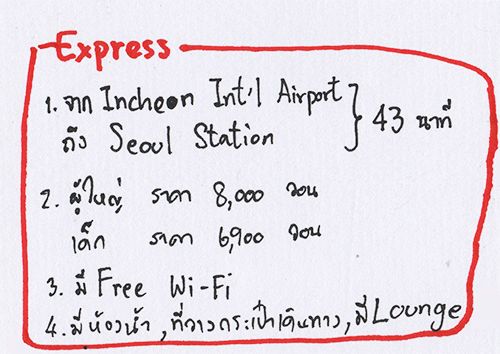 Express
1. จาก Incheon Int'l Airport
ถึง Seoul Station } 43 นาที
2. ผู้ใหญ่ ราคา 8,000 วอน
เด็ก ราคา 6,900 วอน
3. มี Free Wi-Fi
4. มีห้องน้ำ, ที่วางกระเป๋าเดินทาง, มี Lounge